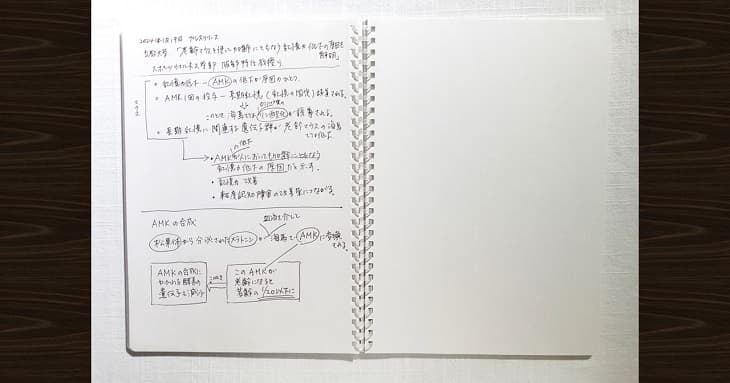 2024年1月19日 プレスリリース
立教大学 「老齢マウスを使い加齢にともなう記憶力低下の原因を解明」
スポーツウエルネス学部 服部特任教授ら
マウス
・記憶力低下 - AMKの低下が原因のひとつ。
・AMK 1回の投与 - 長期記憶(記憶の固定)誘導される。
このとき海馬では リン酸化が誘導される。
・長期記憶に関連する 遺伝子群が 老齢マウスの海馬では低下。
の低下
・AMKが人においても加齢にともなう
記憶力低下の原因だと示す。
・記憶力 改善
・軽度認知障害の改善策につながる。
AMKの合成
血液を介して
松果体から分泌されたメラトニンが 海馬で AMKに変換される。
AMKの合成に
かかわる酵素の
遺伝子も減少
このAMKが
老齢になると
若齢の1/20以下に